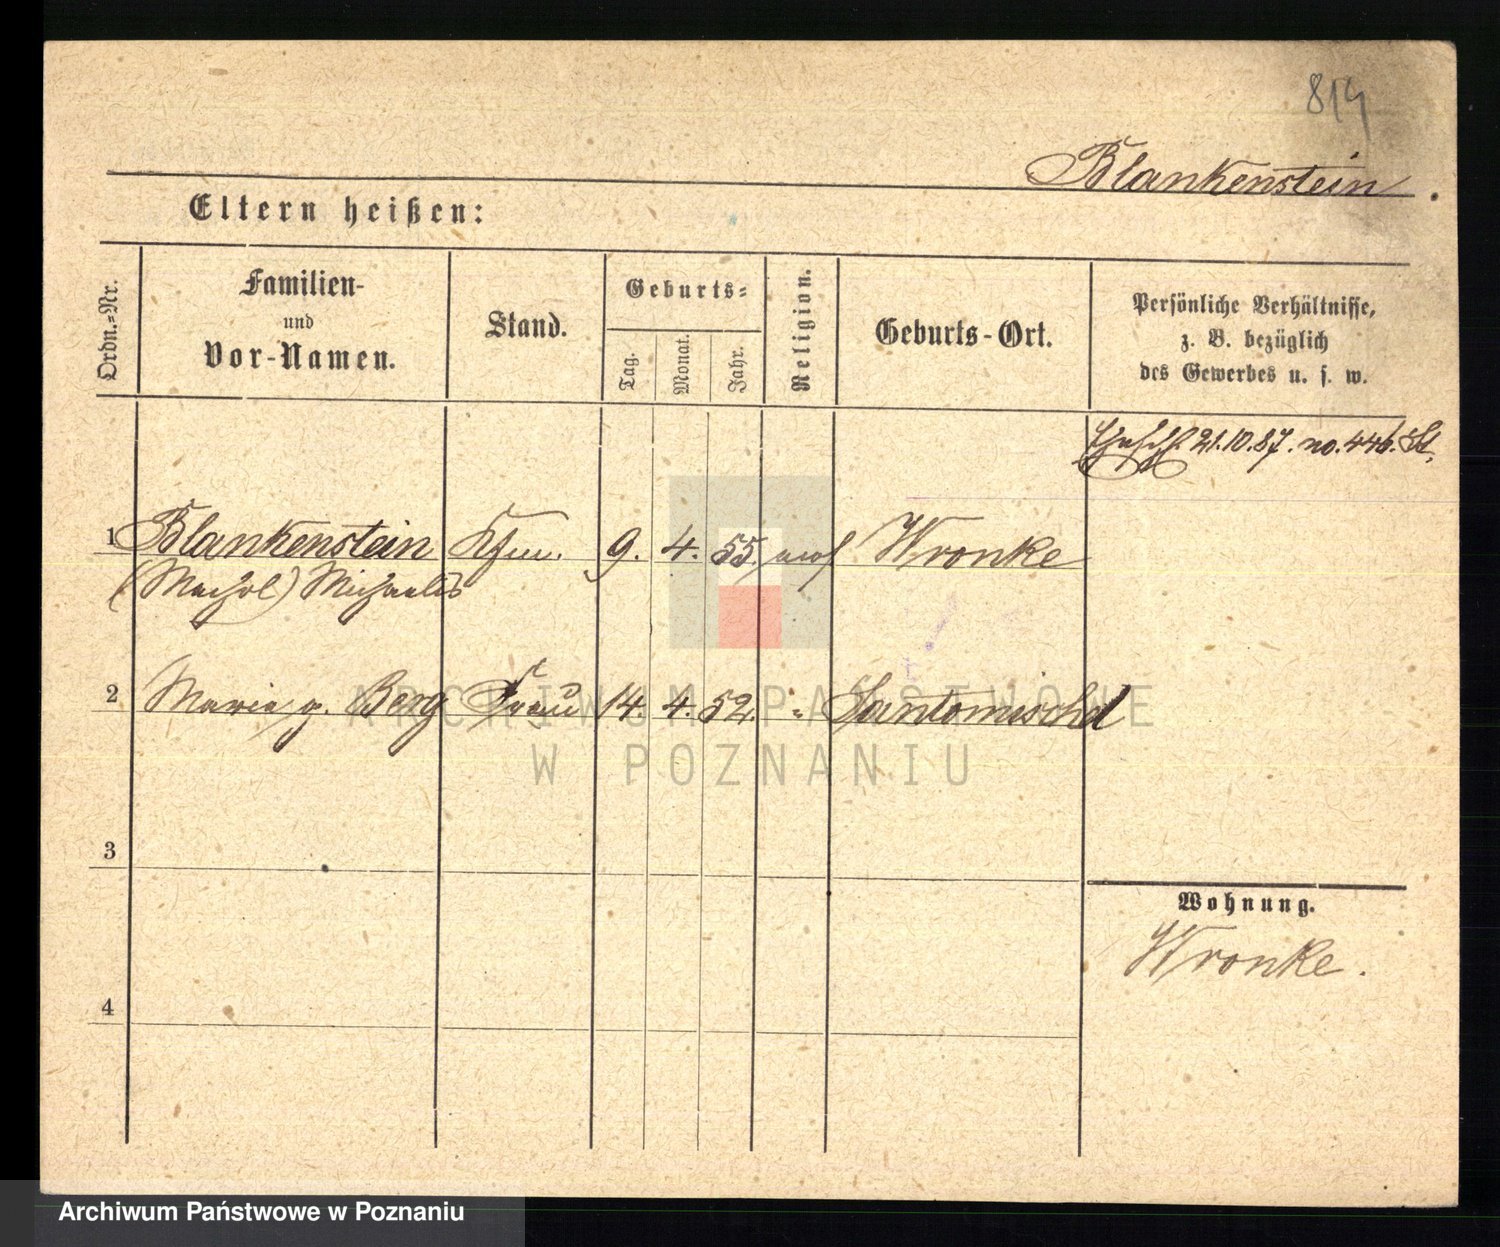 814
Blankenstein.
Eltern heißen:
Ordn.=Nr.
Familien-
und
Vor-Namen.
Stand.
Geburts=
Tag.
Monat.
Jahr.
Religion.
Geburts-Ort.
Persönliche Verhältnisse,
z. B. bezüglich
des Gewerbes u. s. w.
21.10.87. no. 446. St.
1 Blankenstein Kfm. 9. 4. 55. mos Wronke
(Machol) Michaelis
2 Marie g. Berg Frau 14. 4. 52. " Santomischel
3
4
Wohnung.
Wronke.
ARCHIWUM PAŃSTWOWE
W POZNANIU
Archiwum Państwowe w Poznaniu